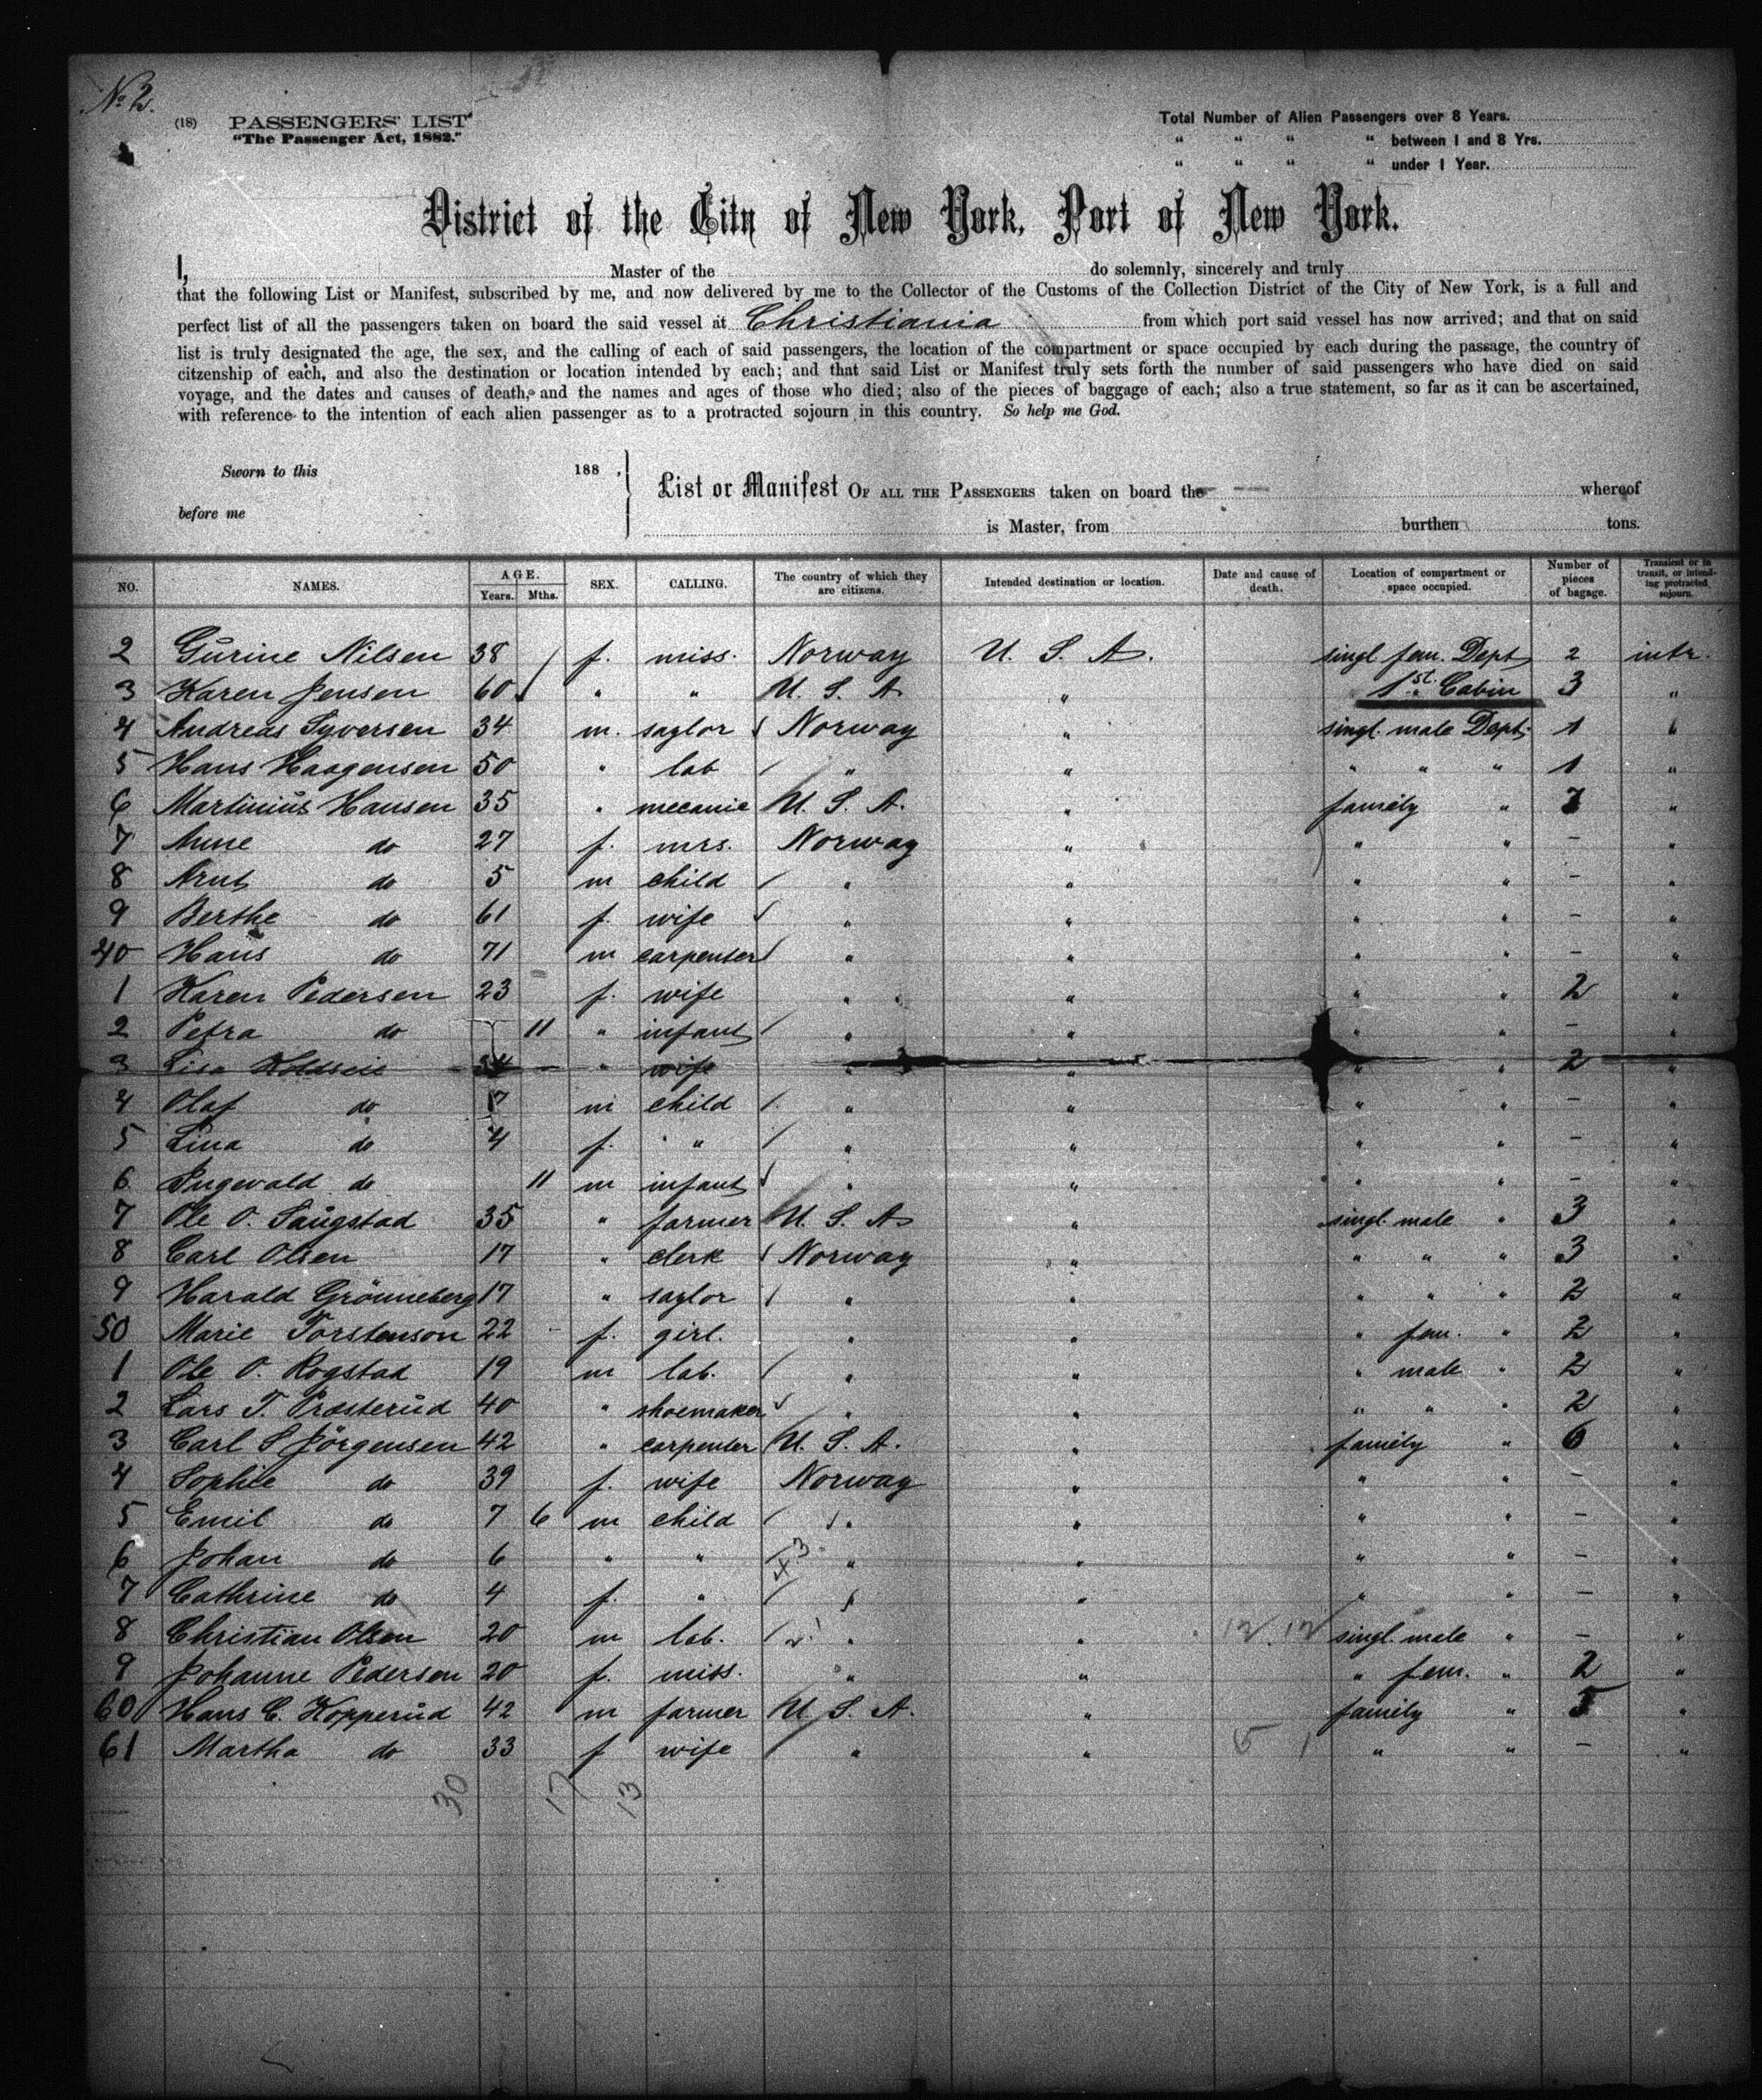 No 2.
(18) PASSENGERS' LIST
"The Passenger Act, 1882."
Total Number of Alien Passengers over 8 Years.
" " " " between 1 and 8 Yrs.
" " " " under 1 Year.
District of the City of New York, Port of New York.
I, Master of the do solemnly, sincerely and truly
that the following List or Manifest, subscribed by me, and now delivered by me to the Collector of the Customs of the Collection District of the City of New York, is a full and
perfect list of all the passengers taken on board the said vessel at Christiania from which port said vessel has now arrived; and that on said
list is truly designated the age, the sex, and the calling of each of said passengers, the location of the compartment or space occupied by each during the passage, the country of
citzenship of each, and also the destination or location intended by each; and that said List or Manifest truly sets forth the number of said passengers who have died on said
voyage, and the dates and causes of death, and the names and ages of those who died; also of the pieces of baggage of each; also a true statement, so far as it can be ascertained,
with reference to the intention of each alien passenger as to a protracted sojourn in this country. So help me God.
Sworn to this 188 .
before me
List or Manifest OF ALL THE PASSENGERS taken on board the whereof
is Master, from burthen tons.
NO. NAMES. AGE. Years. Mths. SEX. CALLING. The country of which they are citizens. Intended destination or location. Date and cause of death. Location of compartment or space occupied. Number of pieces of bagage. Transient or in transit, or intending protracted sojourn.
2 Gůrine Nilsen 38 f. miss. Norway U. S. A. singl fem. Dept 2 intr.
3 Karen Jensen 60 " " U. S. A " 1st Cabin 3 "
4 Andreas Syversen 34 m. saylor Norway " singl. male Dept. 1 "
5 Hans Haagensen 50 " lab " " " " " 1 "
6 Martiniůs Hansen 35 " mecanic U. S. A. " family " "
7 Anne do 27 f. mrs. Norway " " " - "
8 do 5 m child " " " " - "
9 Berthe do 61 f. wife " " " " - "
40 Hans do 71 m carpenter " " " " - "
1 Karen Pedersen 23 f. wife " " " " 2 "
2 Petra do 11 " infant " " " " - "
3 Lisa " wife " " " " 2 "
4 Olaf do 7 m child " " " " - "
5 Lina do 4 f. " " " " " - "
6 Ingevald do 11 m infant " " " " - "
7 Ole O. Saůgstad 35 " farmer U. S. A " singl. male " 3 "
8 Carl Olsen 17 " clerk Norway " " " " 3 "
9 Harald Grönneberg 17 " saylor " " " " " 2 "
50 Marie Torstenson 22 f. girl. " " " fem. " 2 "
1 Ole O. Rogstad 19 m lab. " " " male " 2 "
2 Lars T. Præsterůd 40 " shoemaker " " " " " 2 "
3 Carl S Jörgensen 42 " carpenter U. S. A. " family " 6 "
4 Sophie do 39 f. wife Norway " " " - "
5 Emil do 7 6 m child " " " " - "
6 Johan do 6 " " " " " " - "
7 Cathrine do 4 f. " " " " " - "
8 Christian Olsen 20 m lab. " " 12. 12 singl. male " - "
9 Johanne Pedersen 20 f. miss. " " " fem. " 2 "
60 Hans C. Kopperůd 42 m farmer U. S. A. " family " 5 "
61 Martha do 33 f wife " " 5 1 " " - "
30 17 13